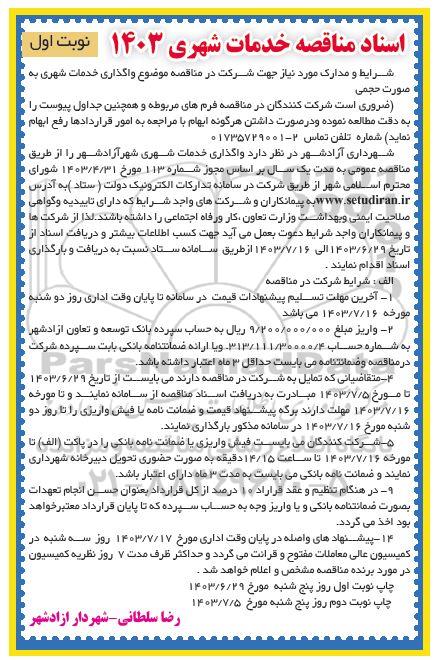 اسناد مناقصه خدمات شهری ۱۴۰۳
نوبت اول
شــرایط و مدارک مورد نیاز جهت شــرکت در مناقصه موضوع واگذاری خدمات شهری به
صورت حجمی
(ضروری است شرکت کنندگان در مناقصه فرم های مربوطه و همچنین جداول پیوست را
به دقت مطالعه نموده ودرصورت داشتن هرگونه ابهام با مراجعه به امور قراردادها رفع ابهام
نماید) شماره تلفن تماس ۲-۰۱۷۳۵۷۲۹۰۰۱
شــهرداری آزادشــهر در نظر دارد واگذاری خدمات شــهری شهرآزادشــهر را از طریق
مناقصه عمومی به مدت یک ســال بر اساس مجوز شــماره ۱۱۳ مورخ ۱۴۰۳/۴/۳۱ شورای
محترم اســلامی شهر از طریق شرکت در سامانه تدارکات الکترونیک دولت ( ستاد )به آدرس
www.setudiran.irبه پیمانکاران و شــرکت های واجد شــرایط که دارای تاییدیه وگواهی
صلاحیت ایمنی وبهداشــت وزارت تعاون ،کار ورفاه اجتماعی را داشته باشند.لذا از شرکت ها
و پیمانکاران واجد شرایط دعوت بعمل می آید جهت کسب اطلاعات بیشتر و دریافت اسناد از
تاریخ ۱۴۰۳/۶/۲۹ الی ۱۴۰۳/۷/۱۶ازطریق ســامانه ســتاد نسبت به دریافت و بارگذاری
اسناد اقدام نمایند .
الف : شرایط شرکت در مناقصه
۱- آخرین مهلت تســلیم پیشنهادات قیمت در سامانه تا پایان وقت اداری روز دو شنبه
مورخه ۱۴۰۳/۷/۱۶ می باشد
۲- واریز مبلغ ۹/۲۰۰/۰۰۰/۰۰۰ ریال به حساب سپرده بانک توسعه و تعاون ازادشهر
به شــماره حســاب ۳۱۳/۱۱۱/۳۰۰۰۰/۴. ویا ارائه ضمانتنامه بانکی بابت ســپرده شرکت
درمناقصه وضمانتنامه می بایست حداقل ۳ ماه اعتبار داشته باشد.
۴-متقاضیانی که تمایل به شــرکت در مناقصه دارند می بایســت از تاریخ ۱۴۰۳/۶/۲۹
تا مــورخ ۱۴۰۳/۷/۵ مبــادرت به دریافت اســناد مناقصه از ســامانه نماینــد و تا مورخه
۱۴۰۳/۷/۱۶ مهلت دارند برگه پیشــنهاد قیمت و ضمانت نامه یا فیش واریزی را تا روز دو
شنبه مورخ ۱۴۰۳/۷/۱۶ در سامانه مذکور بارگذاری نمایند.
۵-شــرکت کنندگان می بایســت فیش واریزی یا ضمانت نامه بانکی را در پاکت (الف) تا
مورخه ۱۴۰۳/۷/۱۶ تا ســاعت ۱۴/۱۵دقیقه به صورت حضوری تحویل دبیرخانه شهرداری
نمایند و ضمانت نامه بانکی می بایست به مدت ۳ ماه دارای اعتبار باشد.
۹- در هنگام تنظیم و عقد قراراد ۱۰ درصد از کل قرارداد بعنوان حســن انجام تعهدات
بصورت ضمانتنامه بانکی و یا واریز وجه به حســاب ســپرده که تا پایان قرارداد معتبرخواهد
بود اخذ می گردد.
۱۴-پیشــنهاد های واصله در پایان وقت اداری مورخ ۱۴۰۳/۷/۱۷ روز ســه شنبه در
کمیسیون عالی معاملات مفتوح و قرائت می گردد و حداکثر ظرف مدت ۷ روز نظریه کمیسیون
در مورد برنده مناقصه مشخص و اعلام خواهد شد .
چاپ نوبت اول روز پنج شنبه مورخ ۱۴۰۳/۶/۲۹
چاپ نوبت دوم روز پنج شنبه مورخ ۱۴۰۳/۷/۵
رضا سلطانی-شهردار ازادشهر